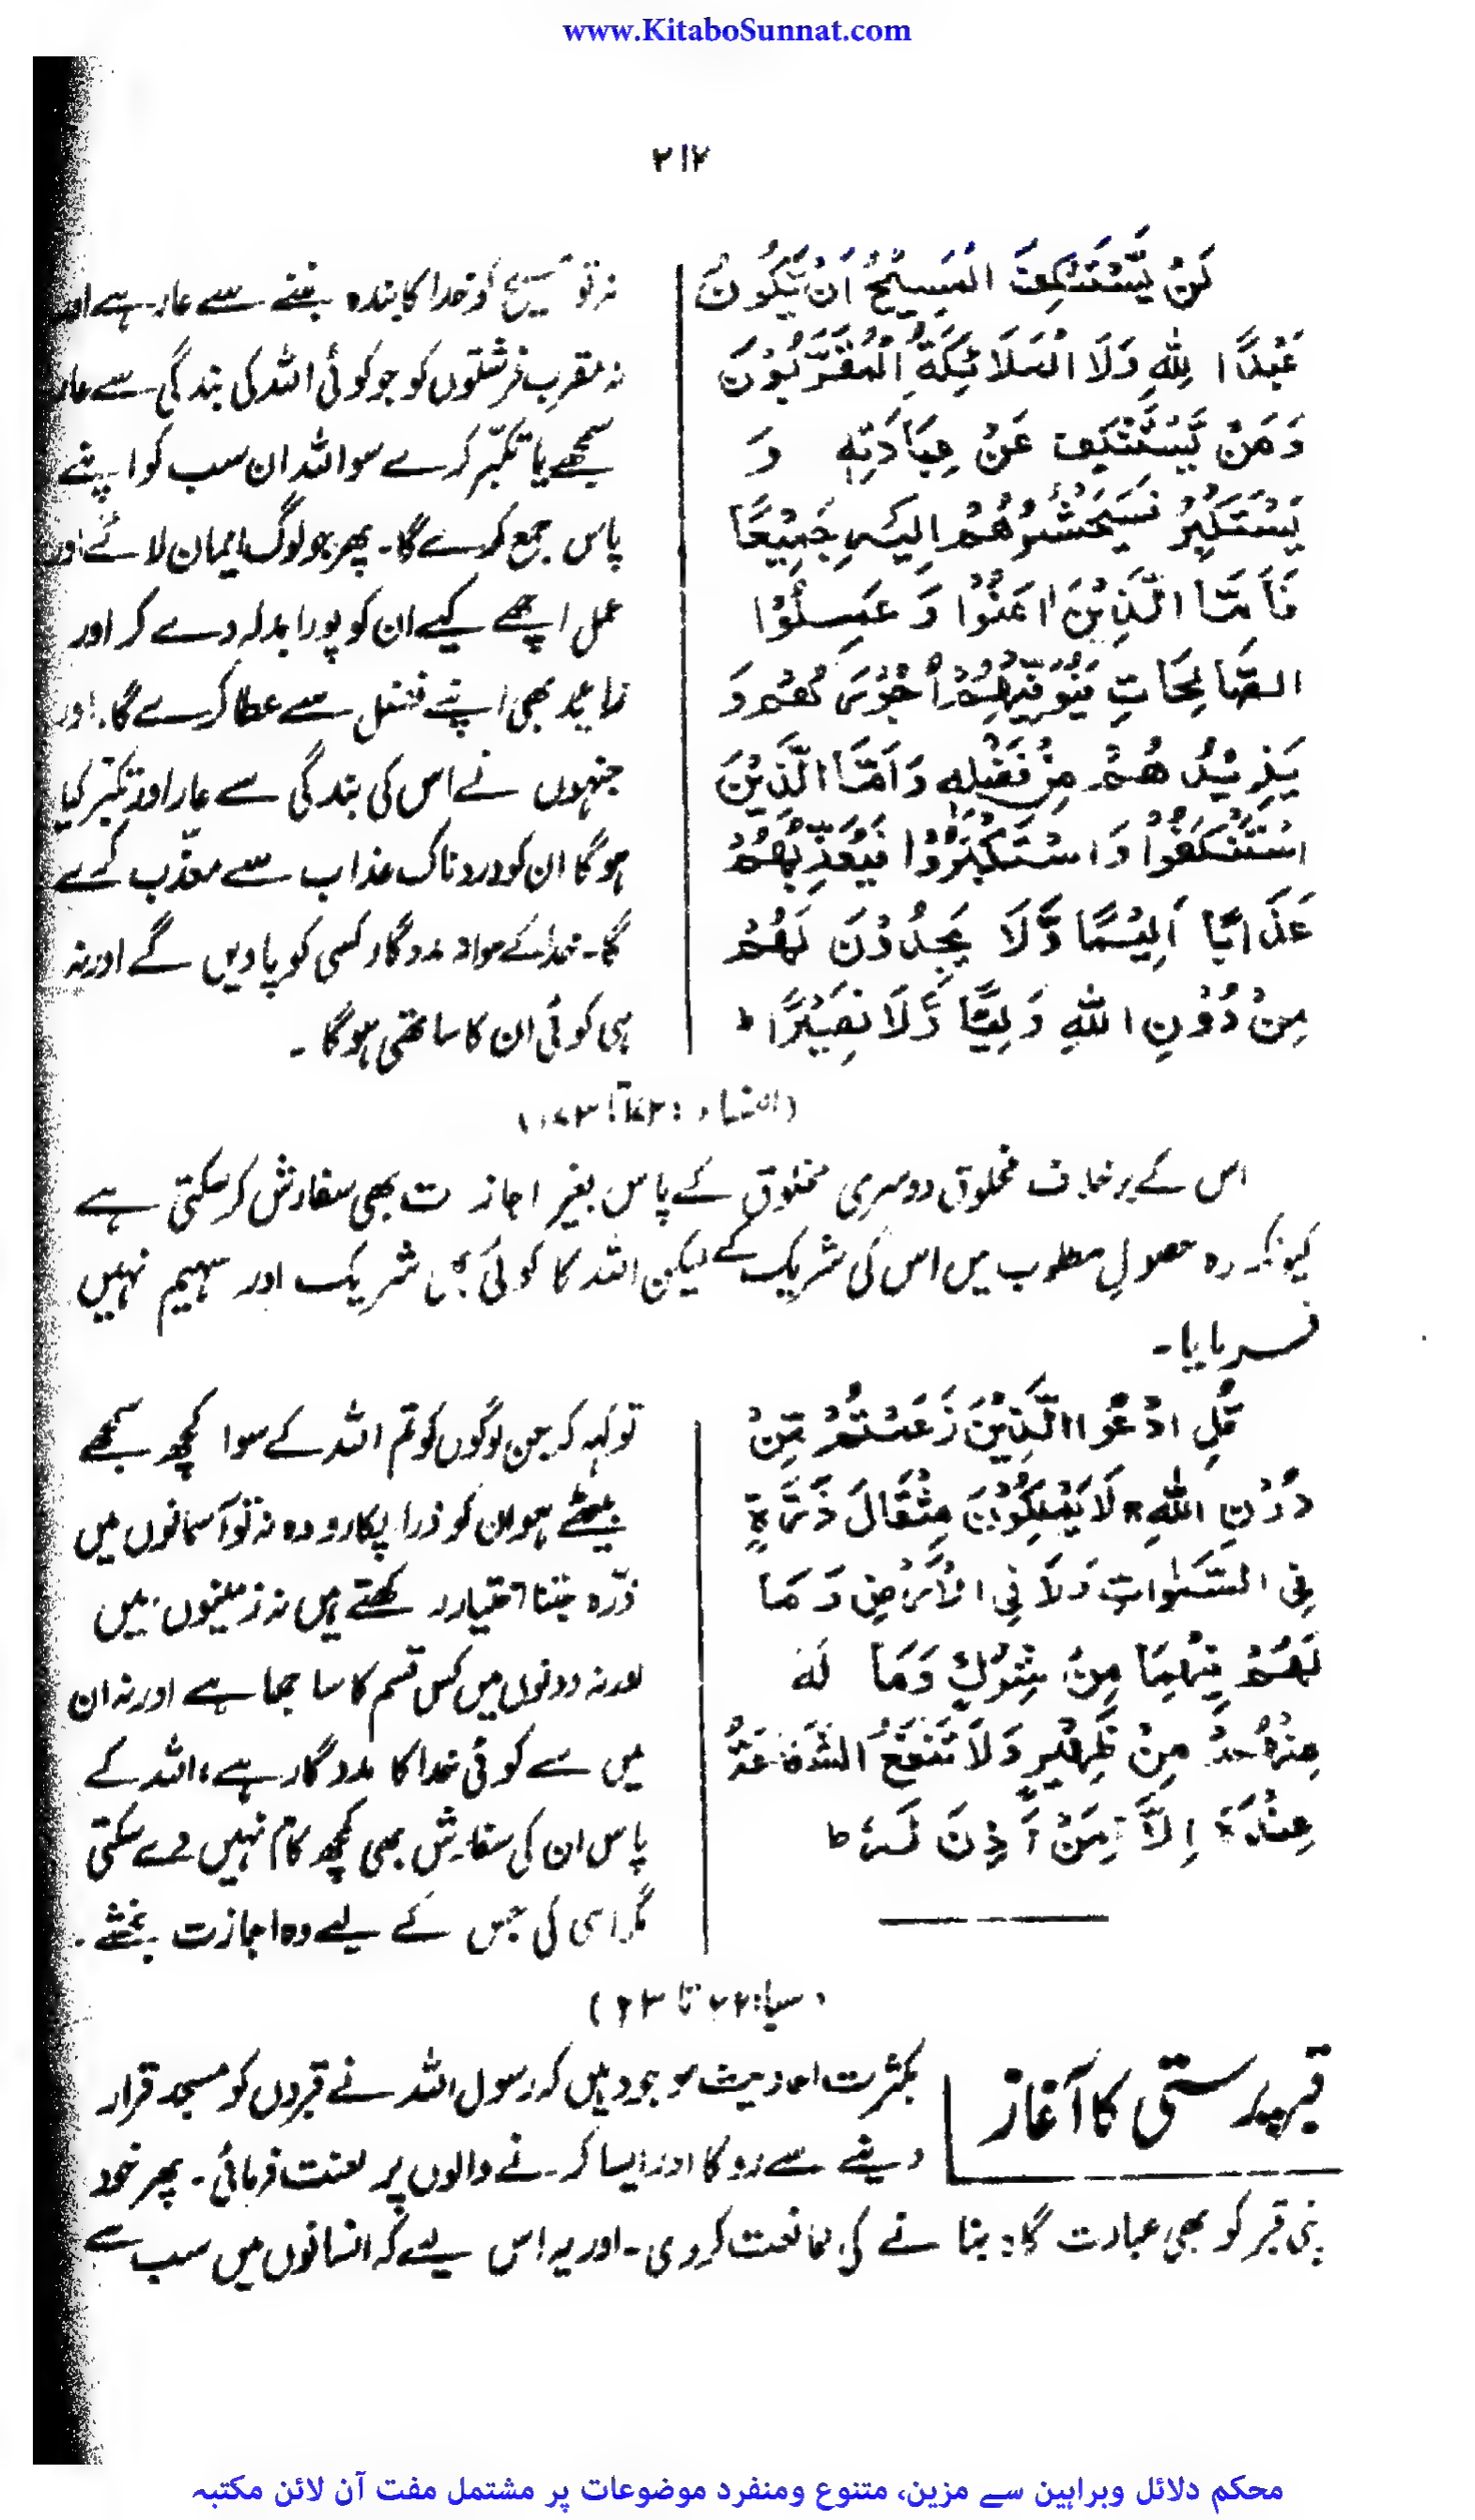 www.KitaboSunnat.com
۲۱۲
لَنْ يَّسْتَنْكِفَ الْمَسِيْحُ اَنْ يَّكُوْنَ
عَبْدًا لِلّٰهِ وَلَا الْمَلَائِكَةُ الْمُقَرَّبُوْنَ
وَمَنْ يَّسْتَنْكِفْ عَنْ عِبَادَتِهٖ وَ
يَسْتَكْبِرْ فَسَيَحْشُرُهُمْ اِلَيْهِ جَمِيْعًا
فَاَمَّا الَّذِيْنَ اٰمَنُوْا وَ عَمِلُوْا
الصَّالِحَاتِ فَيُوَفِّيْهِمْ اُجُوْرَهُمْ وَ
يَزِيْدُهُمْ مِنْ فَضْلِهٖ وَاَمَّا الَّذِيْنَ
اسْتَنْكَفُوْا وَاسْتَكْبَرُوْا فَيُعَذِّبُهُمْ
عَذَابًا اَلِيْمًا وَّلَا يَجِدُوْنَ لَهُمْ
مِنْ دُوْنِ اللّٰهِ وَلِيًّا وَّلَا نَصِيْرًا ط
نہ تو مسیح کو خدا کا بندہ بننے سے عار ہے اور
نہ مقرب فرشتوں کو جو کوئی اللہ کی بندگی سے عار
سمجھے یا تکبّر کرے سو اللہ ان سب کو اپنے
پاس جمع کرے گا۔ پھر جو لوگ ایمان لائے اور
عمل اچھے کیے ان کو پورا بدلہ دے کر اور
زاید بھی اپنے فضل سے عطا کرے گا۔ اور
جنہوں نے اس کی بندگی سے عار اور تکبّر کیا
ہوگا ان کو دردناک عذاب سے معذّب کرے
گا۔ خدا کے سوا نہ مددگار کسی کو پاویں گے اور نہ
ہی کوئی ان کا ساتھی ہوگا۔
(النساء: ۱۷۲ تا ۱۷۳)
اس کے برخلاف مخلوق دوسری مخلوق کے پاس بغیر اجازت بھی سفارش کرسکتی ہے
کیونکہ وہ حصولِ مطلوب میں اس کی شریک ہے لیکن اللہ کا کوئی بھی شریک اور سہیم نہیں
فرمایا۔
قُلِ ادْعُوا الَّذِيْنَ زَعَمْتُمْ مِّنْ
دُوْنِ اللّٰهِ لَا يَمْلِكُوْنَ مِثْقَالَ ذَرَّةٍ
فِى السَّمٰوَاتِ وَلَا فِى الْاَرْضِ وَمَا
لَهُمْ فِيْهِمَا مِنْ شِرْكٍ وَمَا لَهٗ
مِنْهُمْ مِنْ ظَهِيْرٍ وَلَا تَنْفَعُ الشَّفَاعَةُ
عِنْدَهٗ اِلَّا لِمَنْ اَذِنَ لَهٗ ط
تو کہہ کر جن لوگوں کو تم اللہ کے سوا کچھ سمجھے
بیٹھے ہو ان کو ذرا پکارو وہ نہ تو آسمانوں میں
ذرّہ جتنا اختیار رکھتے ہیں نہ زمینوں میں
اور نہ دونوں میں کسی قسم کا ساجھا ہے اور نہ ان
میں سے کوئی خدا کا مددگار ہے، اللہ کے
پاس ان کی سفارش بھی کچھ کام نہیں دے سکتی
مگر اسی کی جس کے لیے وہ اجازت بخشے۔
(سبا: ۲۲ تا ۲۳)
قبر پرستی کا آغاز
بکثرت احادیث موجود ہیں کہ رسول اللہ نے قبروں کو مسجد قرار
دینے سے روکا اور ایسا کرنے والوں پر لعنت فرمائی۔ پھر خود
اپنی قبر کو بھی عبادت گاہ بنانے کی ممانعت کردی۔ اور یہ اس لیے کہ انسانوں میں سب سے
محکم دلائل وبراہین سے مزین، متنوع ومنفرد موضوعات پر مشتمل مفت آن لائن مکتبہ